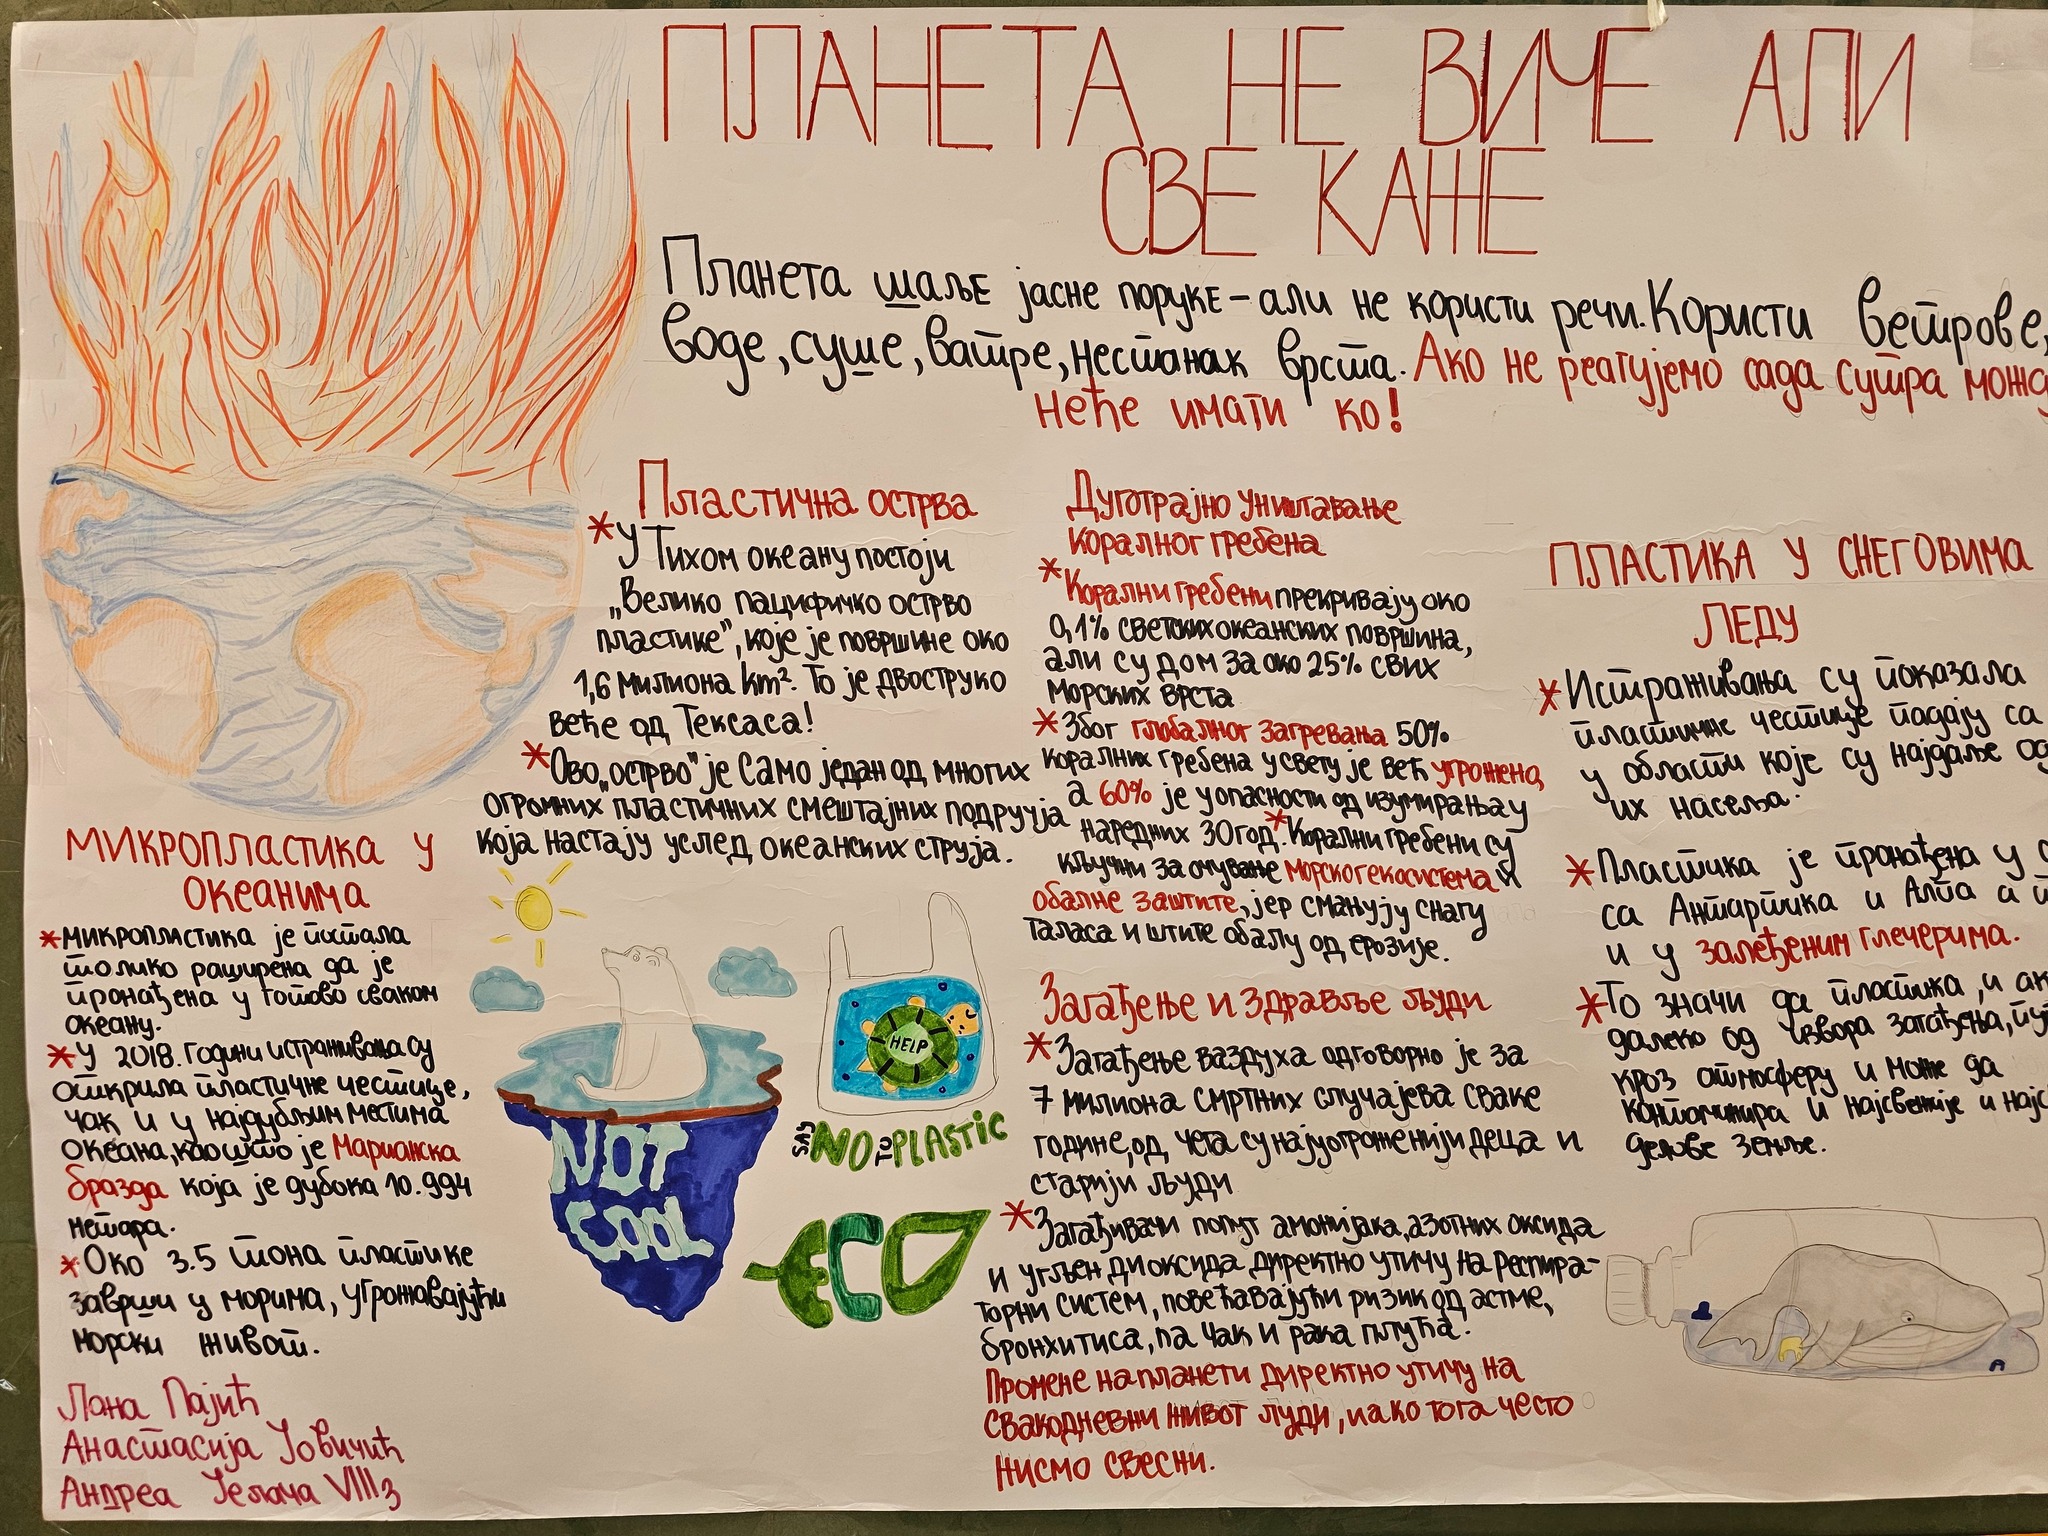 ПЛАНЕТА НЕ ВИЧЕ АЛИ
СВЕ КАЖЕ
Планета шаље јасне поруке - али не користи речи. Користи ветрове,
воде, суше, ватре, нестанак врста. Ако не реагујемо сада сутра можд
неће имати ко!
Пластична острва
*У Тихом океану постоји
„Велико пацифичко острво
пластике", које је површине око
1,6 милиона km². То је двоструко
веће од Тексаса!
*Ово „острво" је само један од многих
огромних пластичних смештајних подручја
која настају услед океанских струја.
МИКРОПЛАСТИКА У
ОКЕАНИМА
*микропластика је
толико раширена да је
пронађена у готово сваком
океану.
*У 2018. години истраживања су
открила пластичне честице,
чак и у најдубљим местима
океана, као што је Марианска
бразда која је дубока 10.994
метара.
*Око 3.5 тона пластике
заврши у морима, угрожавајући
морски живот.
Лана Пајић
Анастасија Јовичић
Андреа Јелача VIII3
NOT
COOL
HELP
SAY NO TO PLASTIC
ECO
Дуготрајно уништавање
коралног гребена
*Корални гребени прекривају око
0,1% светских океанских површина,
али су дом за око 25% свих
морских врста
*Због глобалног загревања 50%
коралних гребена у свету је већ угрожено,
а 60% је у опасности од изумирања у
наредних 30 год. *Корални гребени су
кључни за очување морског екосистема и
обалне заштите, јер смањују снагу
таласа и штите обалу од ерозије.
Загађење и здравље људи
*Загађење ваздуха одговорно је за
7 милиона смртних случајева сваке
године, од чега су најугроженији деца и
старији људи
*Загађивачи попут амонијака, азотних оксида
и угљен диоксида директно утичу на респира-
торни систем, повећавајући ризик од астме,
бронхитиса, па чак и рака плућа.
Промене на планети директно утичу на
свакодневни живот људи, иако тога често
нисмо свесни.
ПЛАСТИКА У СНЕГОВИМА
ЛЕДУ
*Истраживања су показала
пластичне честице падају са
у области које су најдаље од
их насеља.
*Пластика је пронађена у
са Антартика и Алпа а
и у залеђеним глечерима.
*То значи да пластика, и ак
далеко од извора загађења,
кроз атмосферу и може да
контаминира и најсвежије и
делове земље.